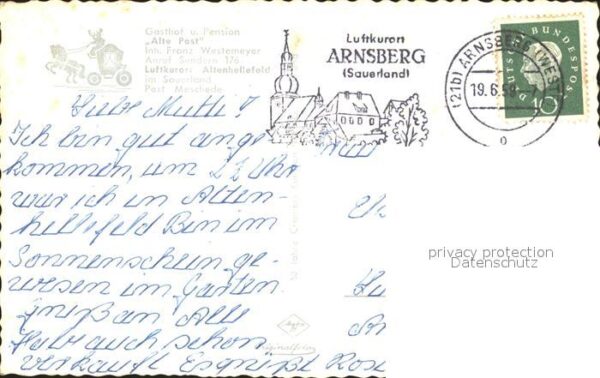 Gasthof u. Pension
„Alte Post"
Inh. Franz Westemeyer
Anruf Sundern 176
Luftkurort Altenhellefeld
im Sauerland
Post Meschede
Luftkurort
ARNSBERG
(Sauerland)
(21b) ARNSBERG (WESTF)
19.6.59.-7
DEUTSCHE BUNDESPOST
10
Liebe Mutti!
Ich bin gut ange
kommen, um 2 Uhr
war ich in Alten-
hellefeld Bin im
Sonnenschein ge-
wesen im Garten
Gruß an Alle
Habe auch schon
verkauft Es grüßt Rose
privacy protection
Datenschutz
Agfa
Originalfoto